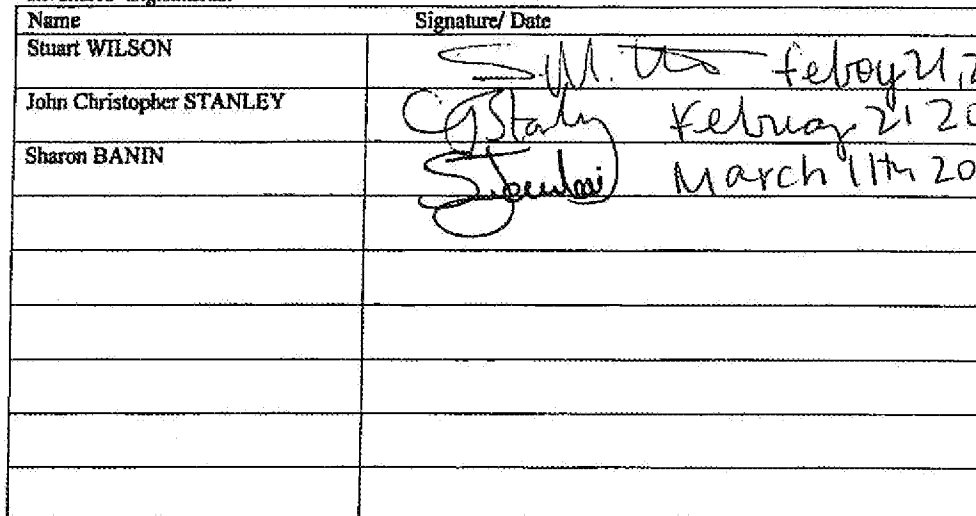 Name Signature/ Date
Stuart WILSON 21, 2
John Christopher STANLEY CJStanley February 21 20
Sharon BANIN March 11th 20